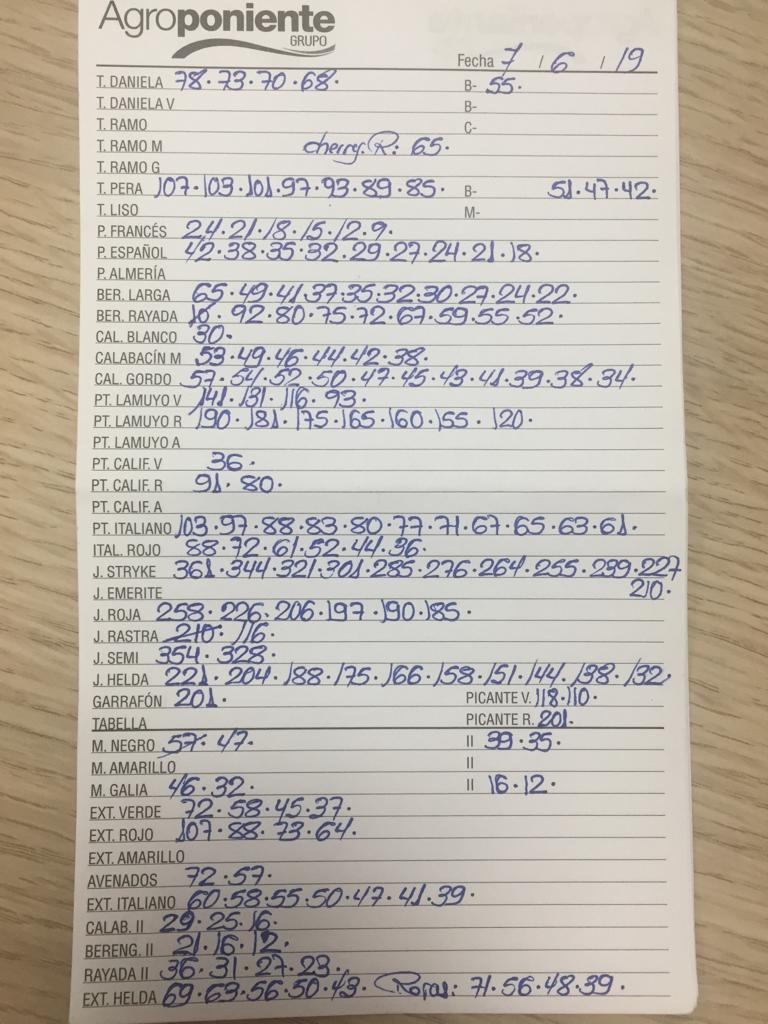 Agroponiente
GRUPO
Fecha 7 / 6 / 19
T. DANELA 78·73·70·68· B- 55·
T. DANIELA V B-
T. RAMO C-
T. RAMO M cherry. R: 65·
T. RAMO G
T. PERA 107·103·101·97·93·89·85· B- 51·47·42·
T. LISO M-
P. FRANCÉS 24·21·18·15·12·9·
P. ESPAÑOL 42·38·35·32·29·27·24·21·18·
P. ALMERÍA
BER. LARGA 65·49·41·37·35·32·30·27·24·22·
BER. RAYADA 92·80·75·72·67·59·55·52·
CAL. BLANCO 30·
CALABACÍN M 53·49·46·44·42·38·
CAL. GORDO 57·54·52·50·47·45·43·41·39·38·34·
PT. LAMUYO V 141·131·116·93·
PT. LAMUYO R 190·181·175·165·160·155·120·
PT. LAMUYO A
PT. CALIF. V 36·
PT. CALIF. R 91·80·
PT. CALIF. A
PT. ITALIANO 103·97·88·83·80·77·71·67·65·63·61·
ITAL. ROJO 88·72·61·52·44·36·
J. STRYKE 361·344·321·301·285·276·264·255·239·227
J. EMERITE 210·
J. ROJA 258·226·206·197·190·185·
J. RASTRA 210·116·
J. SEMI 354·328·
J. HELDA 221·204·188·175·166·158·151·144·138·132
GARRAFÓN 201· PICANTE V. 118·110·
TABELLA PICANTE R. 201·
M. NEGRO 57·47· II 39·35·
M. AMARILLO II
M. GALIA 46·32· II 16·12·
EXT. VERDE 72·58·45·37·
EXT. ROJO 107·88·73·64·
EXT. AMARILLO
AVENADOS 72·57·
EXT. ITALIANO 60·58·55·50·47·41·39·
CALAB. II 29·25·16·
BERENG. II 21·16·12·
RAYADA II 36·31·27·23·
EXT. HELDA 69·63·56·50·43· Rojas: 71·56·48·39·